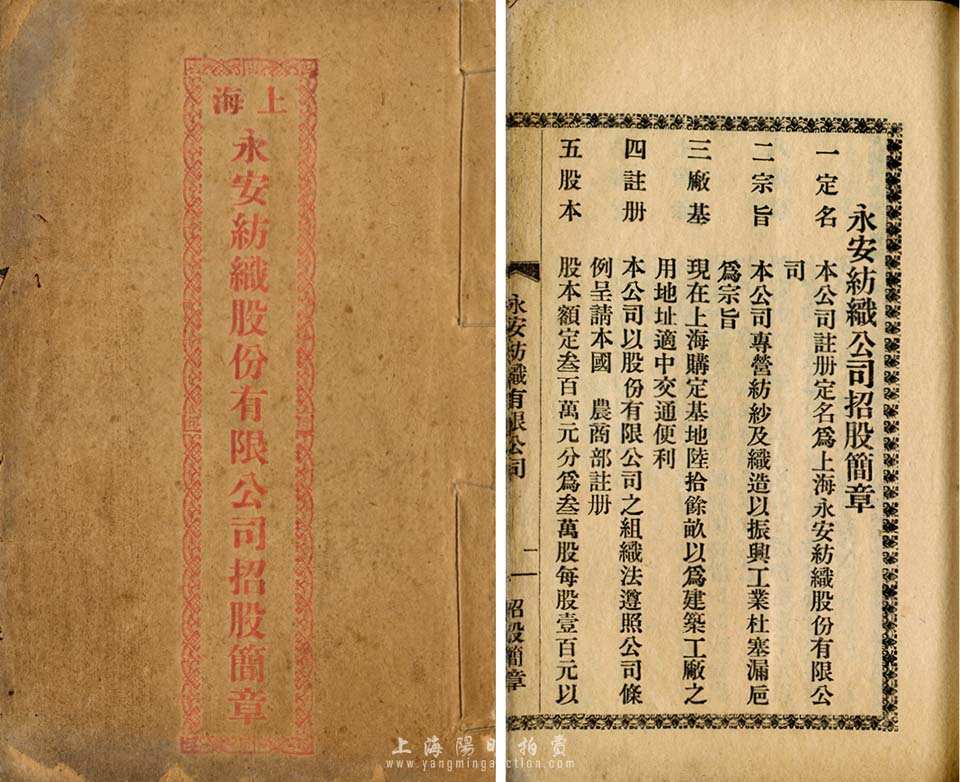 上海
永安紡織股份有限公司招股簡章
永安紡織公司招股簡章
一定名　本公司註册定名爲上海永安紡織股份有限公
司
二宗旨　本公司專營紡紗及織造以振興工業杜塞漏巵
爲宗旨
三廠基　現在上海購定基地陸拾餘畝以爲建築工廠之
用地址適中交通便利
四註册　本公司以股份有限公司之組織法遵照公司條
例呈請本國　農商部註册
五股本　股本額定叁百萬元分爲叁萬股每股壹百元以
永安紡織有限公司　一　招股簡章
上海陽明拍賣
www.yangmingauction.com